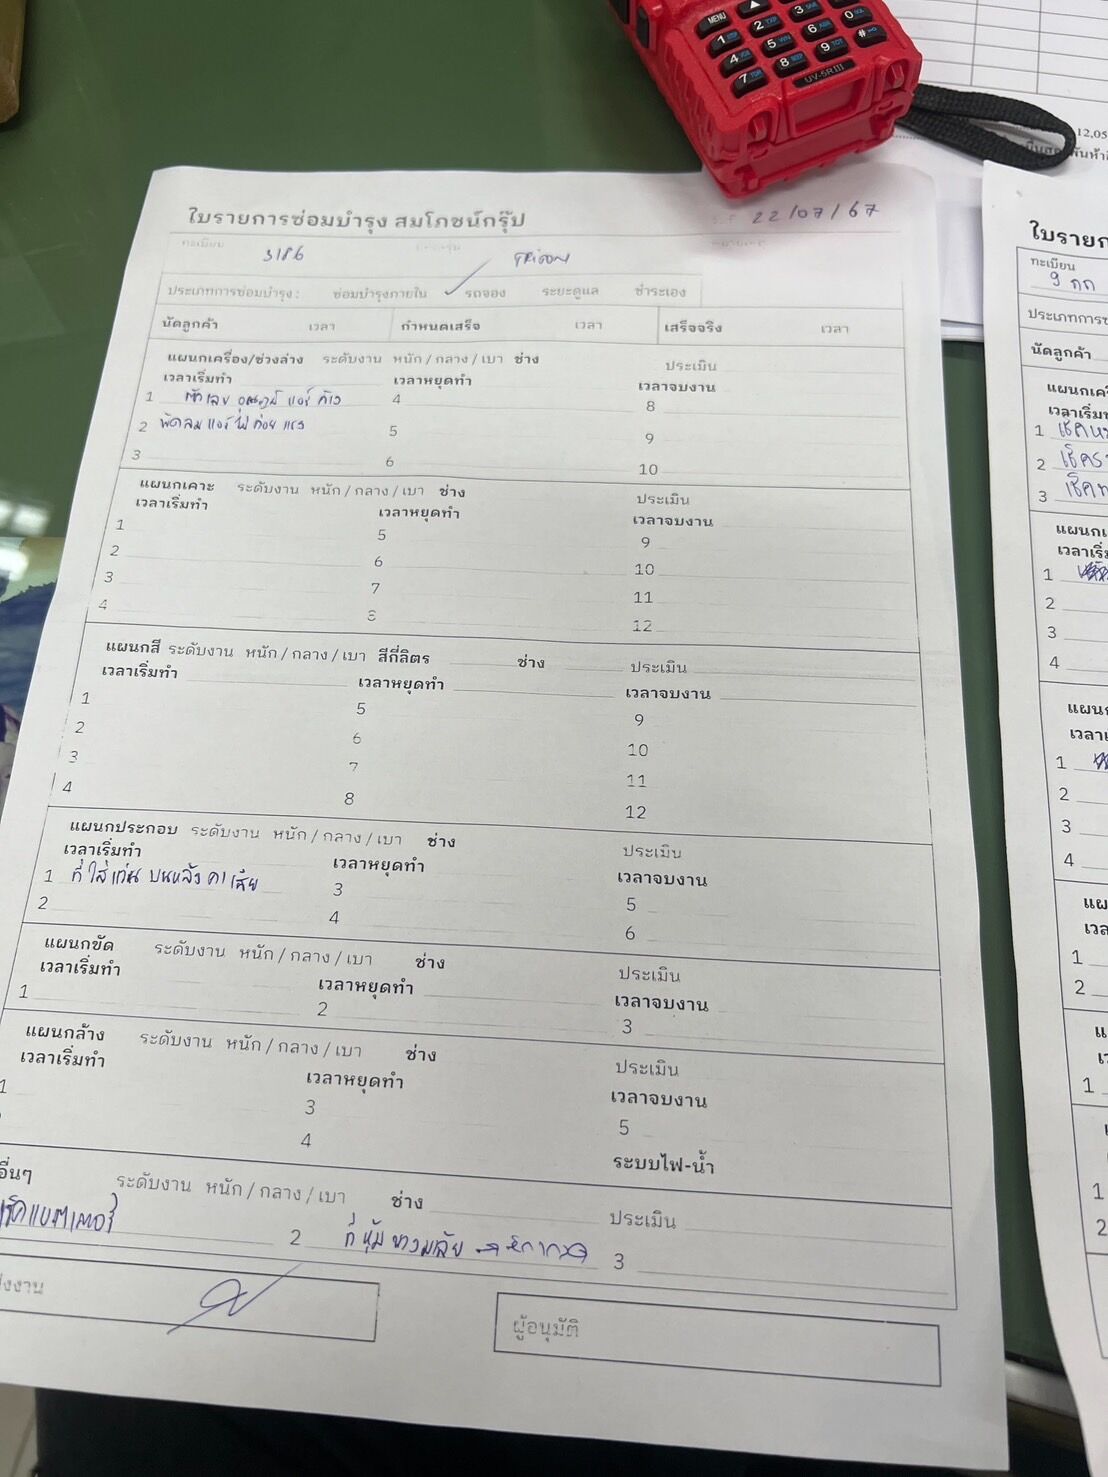 MENU
UV-5R III
12,05
ใบรายการซ่อมบำรุง สมโภชน์กรุ๊ป
22/07/67
ทะเบียน 3186
ประเภทการซ่อมบำรุง: ซ่อมบำรุงภายใน รถจอง ระยะดูแล ชำระเอง
นัดลูกค้า เวลา กำหนดเสร็จ เวลา เสร็จจริง เวลา
แผนกเครื่อง/ช่วงล่าง ระดับงาน หนัก / กลาง / เบา ช่าง ประเมิน
เวลาเริ่มทำ เวลาหยุดทำ เวลาจบงาน
1 แอร์ ค้าง 4 8
2 พัดลมแอร์ไม่ค่อยแรง 5 9
3 6 10
แผนกเคาะ ระดับงาน หนัก / กลาง / เบา ช่าง ประเมิน
เวลาเริ่มทำ เวลาหยุดทำ เวลาจบงาน
1 5 9
2 6 10
3 7 11
4 8 12
แผนกสี ระดับงาน หนัก / กลาง / เบา สีกี่ลิตร ช่าง ประเมิน
เวลาเริ่มทำ เวลาหยุดทำ เวลาจบงาน
1 5 9
2 6 10
3 7 11
4 8 12
แผนกประกอบ ระดับงาน หนัก / กลาง / เบา ช่าง ประเมิน
เวลาเริ่มทำ เวลาหยุดทำ เวลาจบงาน
1 ที่ใส่แว่น บนหลังคาเสีย 3 5
2 4 6
แผนกขัด ระดับงาน หนัก / กลาง / เบา ช่าง ประเมิน
เวลาเริ่มทำ เวลาหยุดทำ เวลาจบงาน
1 2 3
แผนกล้าง ระดับงาน หนัก / กลาง / เบา ช่าง ประเมิน
เวลาเริ่มทำ เวลาหยุดทำ เวลาจบงาน
1 3 5
4 ระบบไฟ-น้ำ
อื่นๆ ระดับงาน หนัก / กลาง / เบา ช่าง ประเมิน
เช็คแบตเตอรี่ 2 ที่หุ้มพวงมาลัย 3
ผู้อนุมัติ
ทะเบียน
นัดลูกค้า